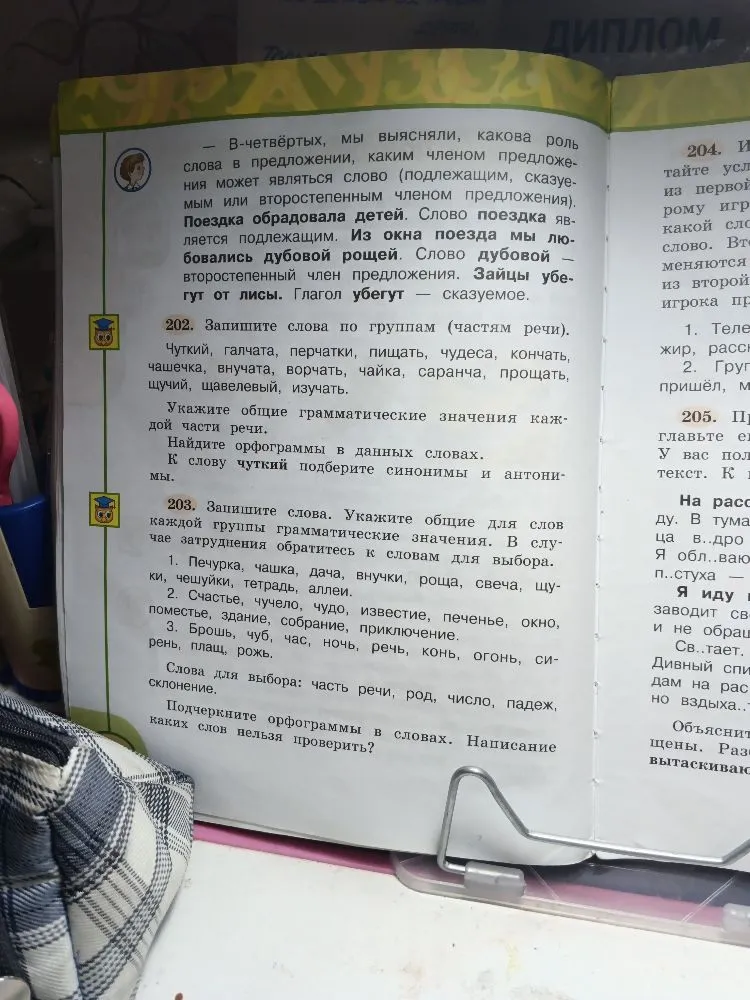 ДИПЛОМ
— В-четвёртых, мы выясняли, какова роль
слова в предложении, каким членом предложе-
ния может являться слово (подлежащим, сказуе-
мым или второстепенным членом предложения).
Поездка обрадовала детей. Слово поездка яв-
ляется подлежащим. Из окна поезда мы лю-
бовались дубовой рощей. Слово дубовой —
второстепенный член предложения. Зайцы убе-
гут от лисы. Глагол убегут — сказуемое.
202. Запишите слова по группам (частям речи).
Чуткий, галчата, перчатки, пищать, чудеса, кончать,
чашечка, внучата, ворчать, чайка, саранча, прощать,
щучий, щавелевый, изучать.
Укажите общие грамматические значения каж-
дой части речи.
Найдите орфограммы в данных словах.
К слову чуткий подберите синонимы и антони-
мы.
203. Запишите слова. Укажите общие для слов
каждой группы грамматические значения. В слу-
чае затруднения обратитесь к словам для выбора.
1. Печурка, чашка, дача, внучки, роща, свеча, щу-
ки, чешуйки, тетрадь, аллеи.
2. Счастье, чучело, чудо, известие, печенье, окно,
поместье, здание, собрание, приключение.
3. Брошь, чуб, час, ночь, речь, конь, огонь, си-
рень, плащ, рожь.
Слова для выбора: часть речи, род, число, падеж,
склонение.
Подчеркните орфограммы в словах. Написание
каких слов нельзя проверить?
204. И
тайте усл
из первой
рому игр
какой сло
слово. Вто
меняются
из второй
игрока пр
1. Теле
жир, расск
2. Груп
пришёл, м
205. Пр
главьте е
У вас пол
текст. К
На расс
ду. В тума
ца в..дро
Я обл..ваю
п..стуха —
Я иду
заводит св
и не обращ
Св..тает.
Дивный спи
дам на рас
но вздыха..
Объяснит
щены. Раз
вытаскиваю